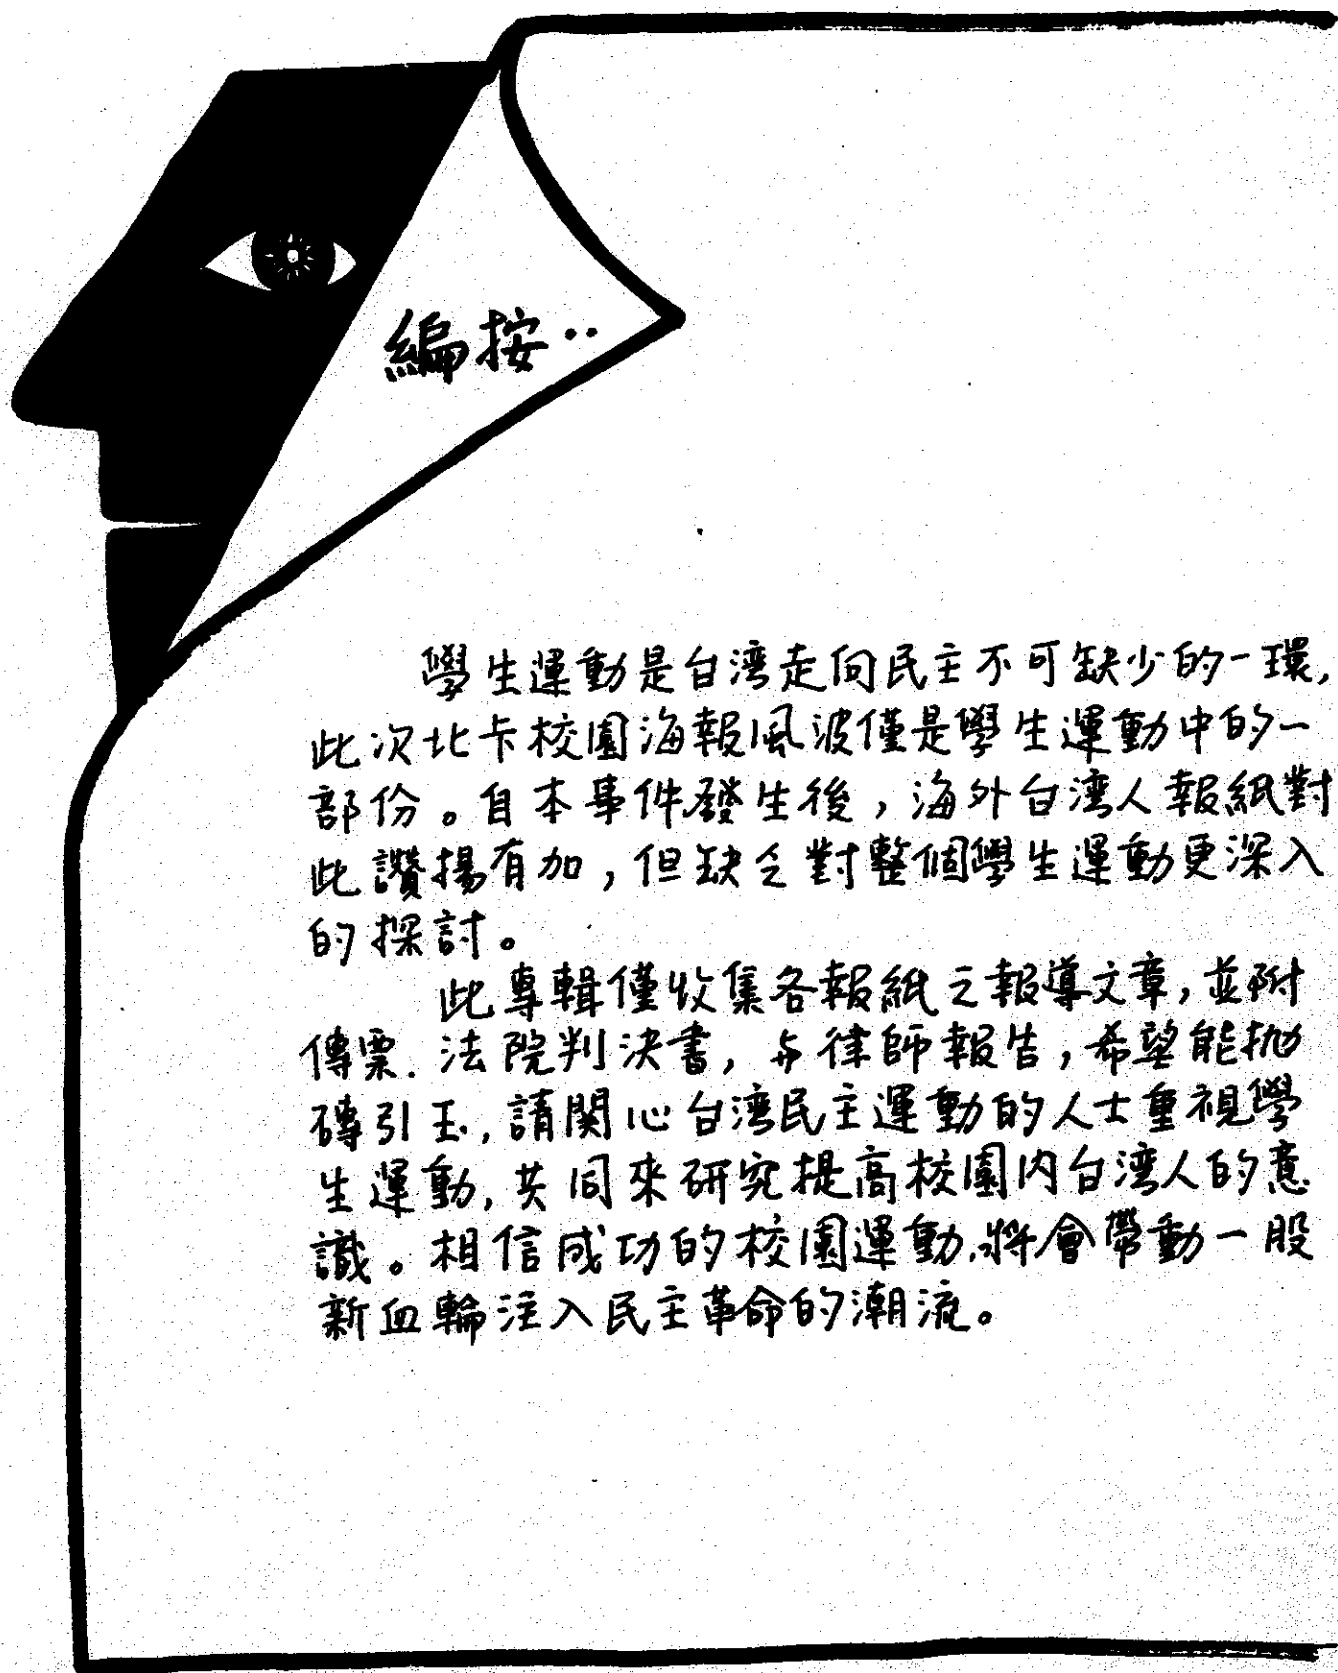 編按：
學生運動是台湾走向民主不可缺少的一環,
此次北卡校園海報風波僅是學生運動中的一
部份。自本事件發生後，海外台湾人報紙對
此讚揚有加，但缺乏對整個學生運動更深入
的探討。
此專輯僅收集各報紙之報導文章，並附
傳票.法院判決書，与律師報告，希望能抛
磚引玉,請関心台湾民主運動的人士重視學
生運動,共同來研究提高校園内台湾人的意
識。相信成功的校園運動,將會帶動一股
新血輪注入民主革命的潮流。